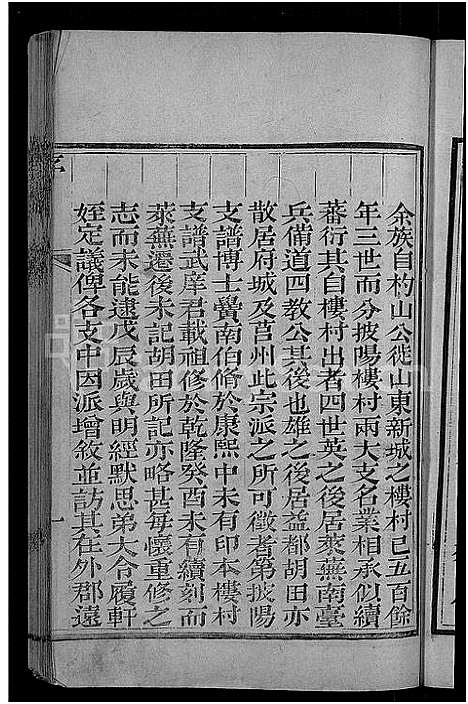 余族自杓山公徙山東新城之樓村已五百餘
年三世而分披陽樓村兩大支名業相承似續
蕃衍其自樓村出者四世英之後居萊蕪南臺
兵備道四教公其後也雄之後居益都胡田亦
散居府城及莒州此宗派之所可徵者第披陽
支譜博士鷽南伯脩於康熙中未有印本樓村
支譜武庠君載祖修於乾隆癸酉未有續刻而
萊蕪遷後未記胡田所記亦略甚每懷重修之
志而未能逮戊辰歲與明經默思弟大合履軒
姪定議俾各支中因派增敘並訪其在外郡遠
序
一